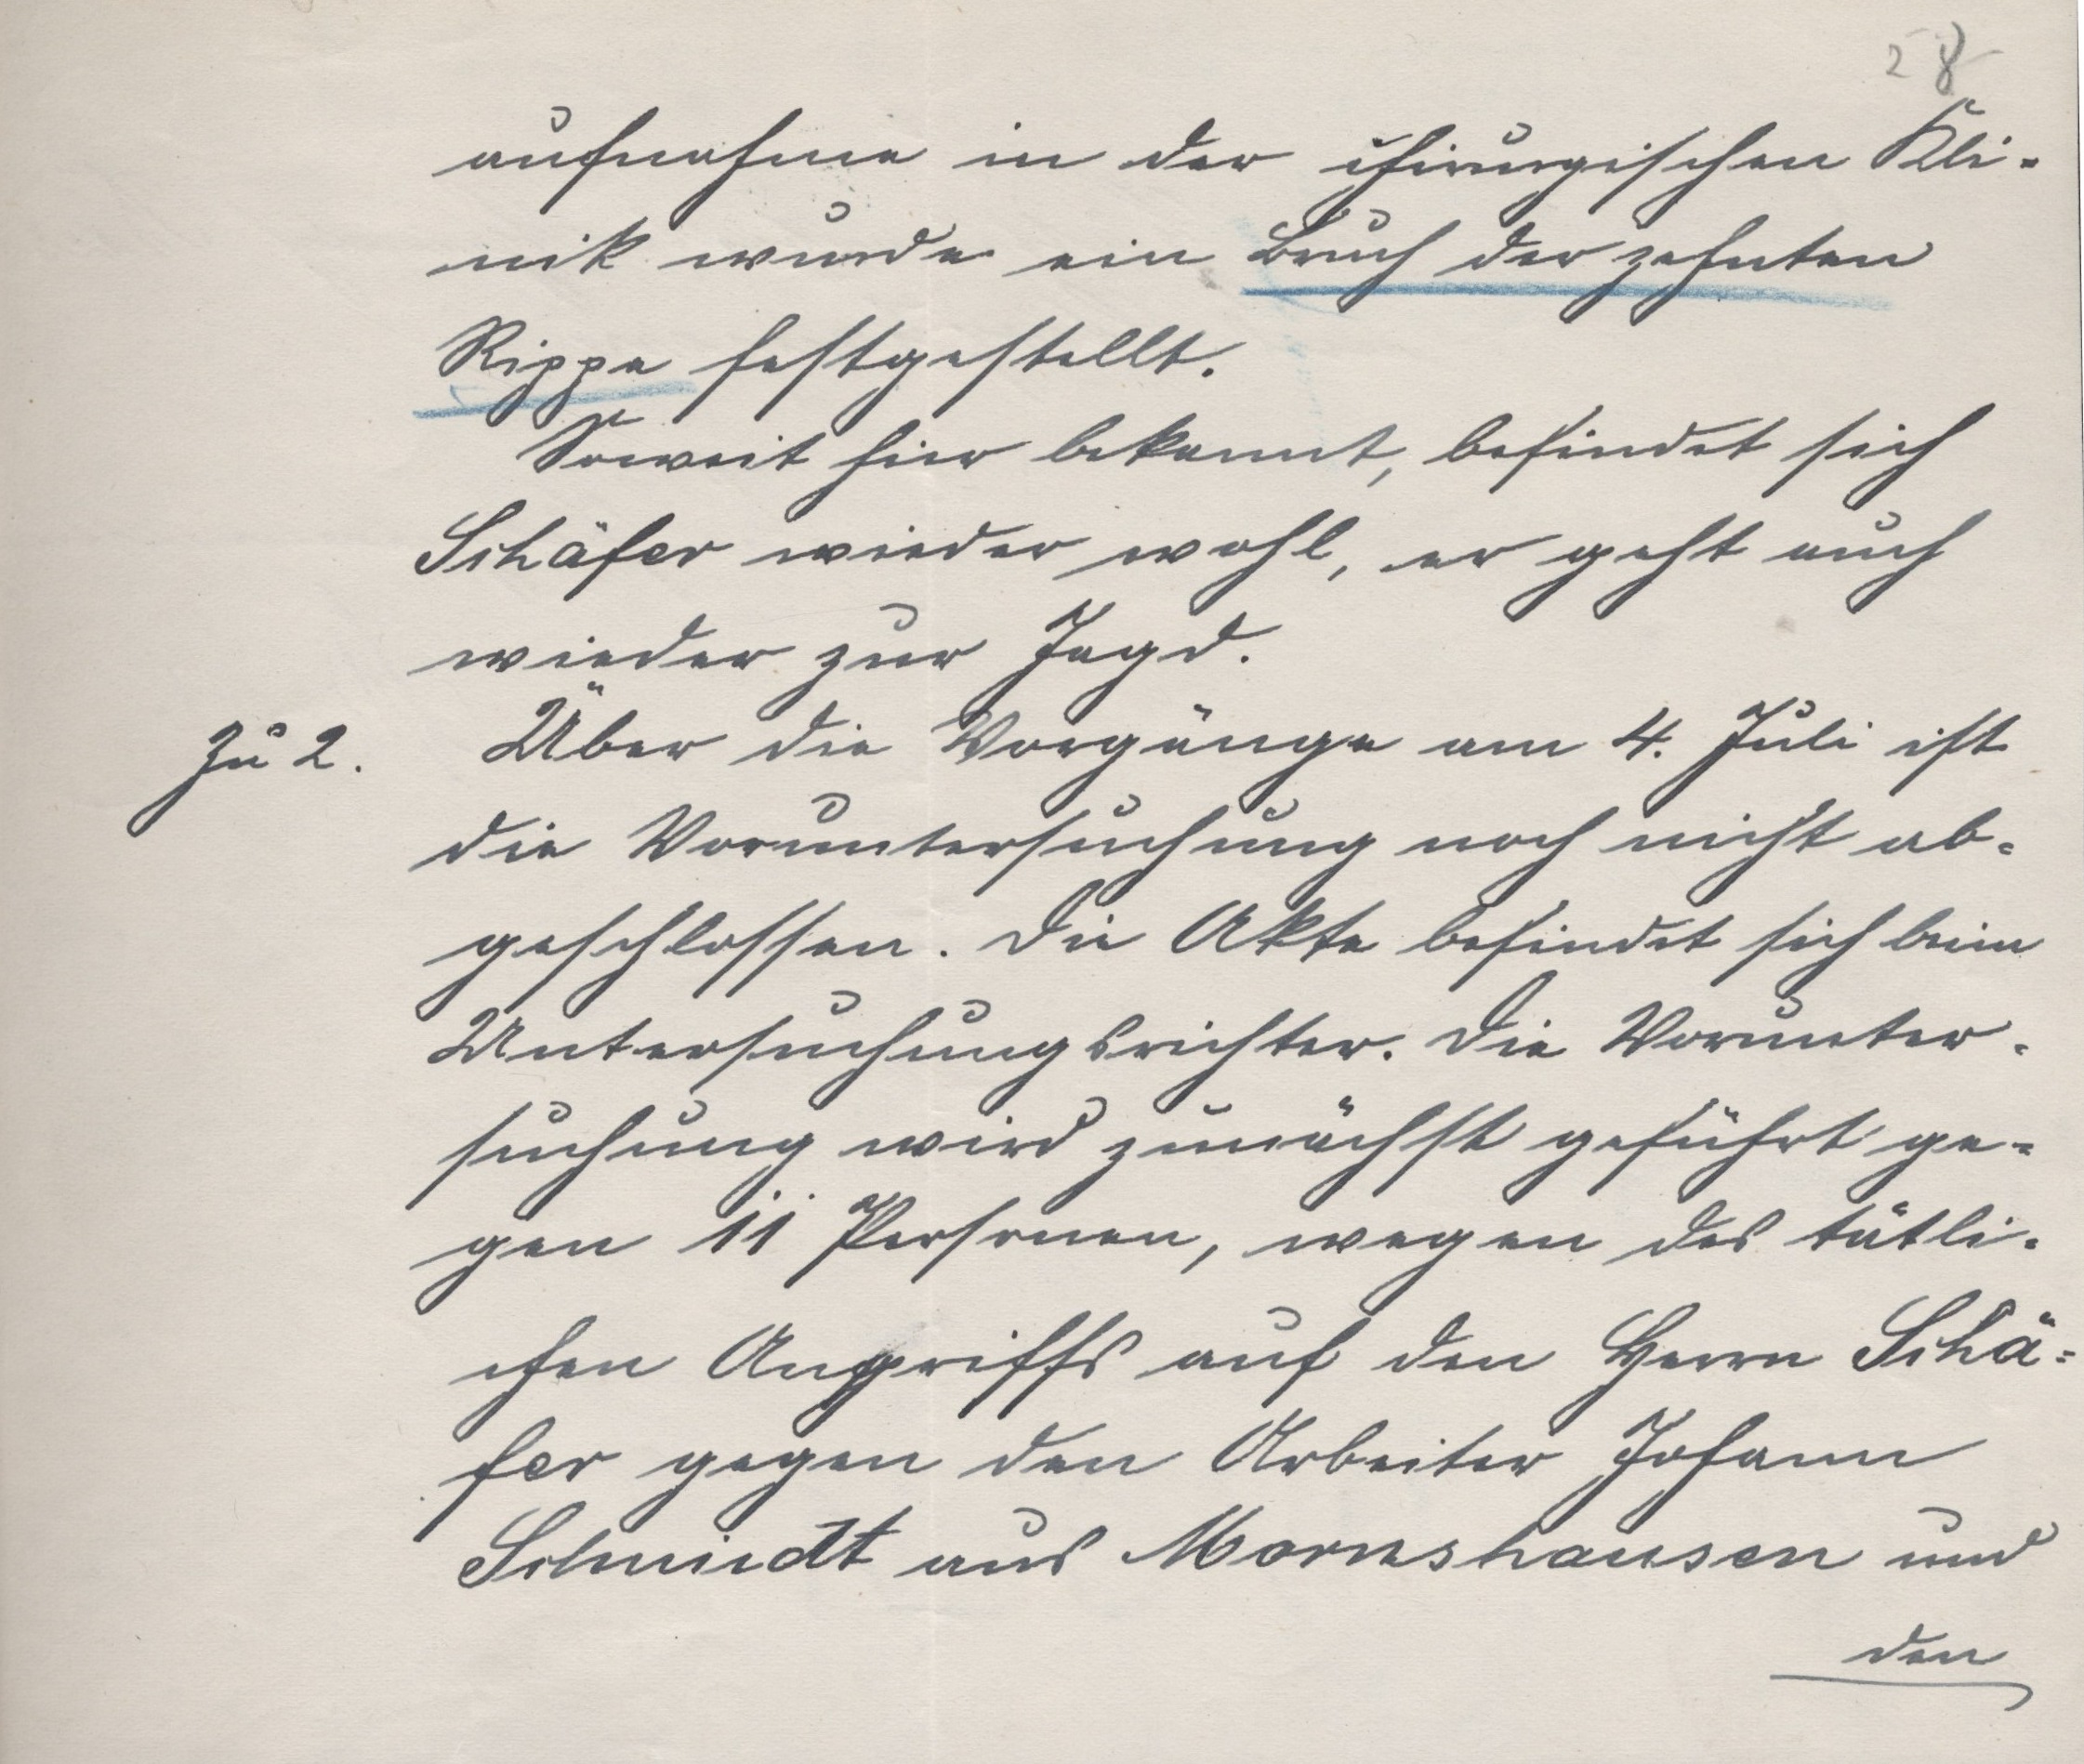 28
aufnahme in der chirurgischen Kli-
nik wurde ein Bruch der zehnten
Rippe festgestellt.
Soweit hier bekannt, befindet sich
Schäfer wieder wohl, er geht auch
wieder zur Jagd.
Zu 2. Über die Vorgänge am 4. Juli ist
die Voruntersuchung noch nicht ab-
geschlossen. Die Akte befindet sich beim
Untersuchungsrichter. Die Vorunter-
suchung wird zunächst geführt ge-
gen 11 Personen, wegen des tätli-
chen Angriffs auf den Herrn Schä-
fer gegen den Arbeiter Johann
Schmidt aus Mornshausen und
den